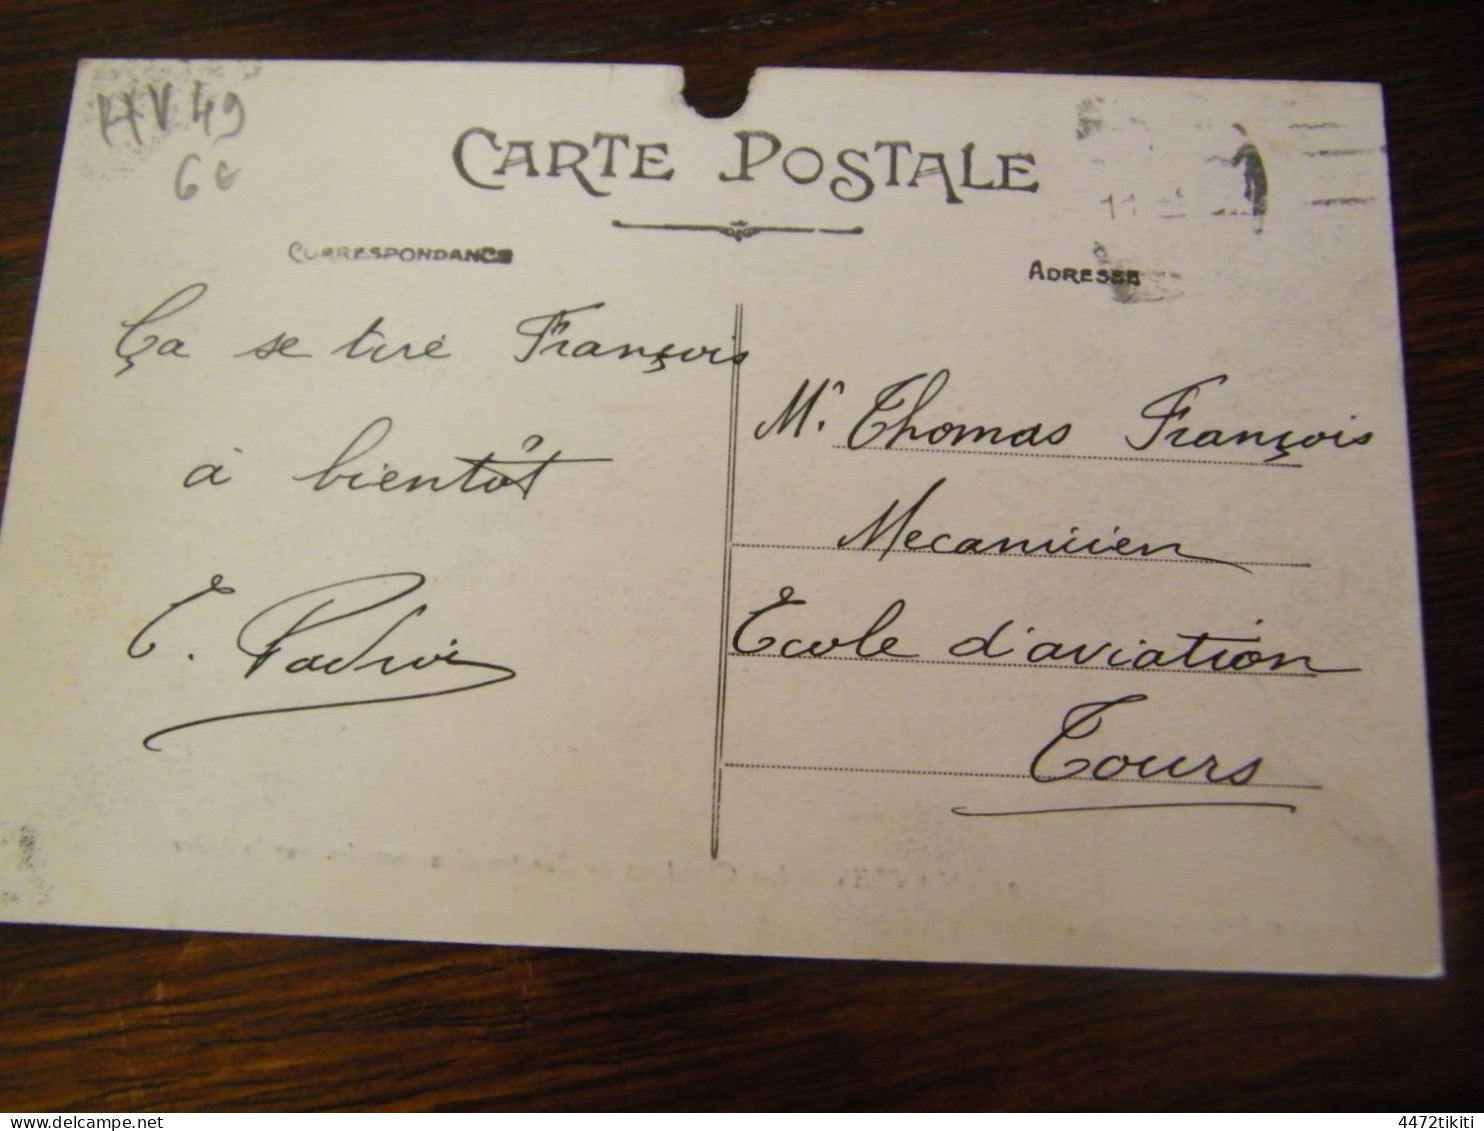 HV 49
6e
CARTE POSTALE
11
CORRESPONDANCE
ADRESSE
Ça se tire François
à bientôt
Mr Thomas François
Mecanicien
Ecole d'aviation
Tours
4472tikiti